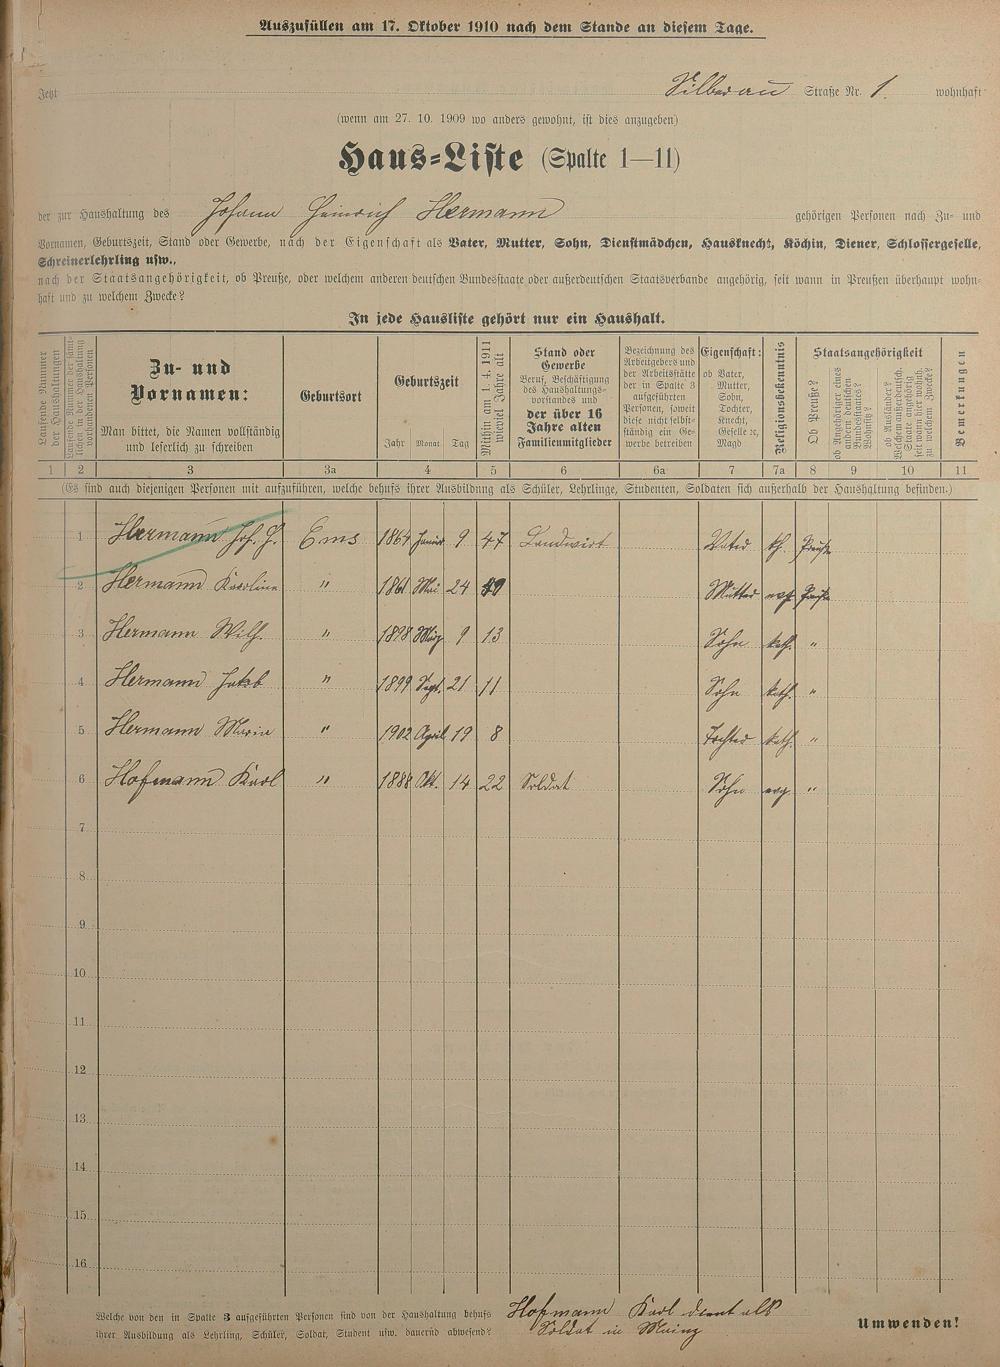 Auszufüllen am 17. Oktober 1910 nach dem Stande an diesem Tage.
Jetzt Silberau Straße Nr. 1. wohnhaft
(wenn am 27. 10. 1909 wo anders gewohnt, ist dies anzugeben)
Haus-Liste (Spalte 1—11)
der zur Haushaltung des Johann Heinrich Hermann gehörigen Personen nach Zu- und
Vornamen, Geburtszeit, Stand oder Gewerbe, nach der Eigenschaft als Vater, Mutter, Sohn, Dienstmädchen, Hausknecht, Köchin, Diener, Schlossergeselle,
Schreinerlehrling usw.,
nach der Staatsangehörigkeit, ob Preuße, oder welchem anderen deutschen Bundesstaate oder außerdeutschen Staatsverbande angehörig, seit wann in Preußen überhaupt wohn-
haft und zu welchem Zwecke?
In jede Hausliste gehört nur ein Haushalt.
Laufende Nummer
der Haushaltungen
Laufende Nummer der sämt-
lichen in der Haushaltung
vorhandenen Personen
Zu- und
Vornamen:
Man bittet, die Namen vollständig
und leserlich zu schreiben
Geburtsort
Geburtszeit
Jahr Monat Tag
Mithin am 1. 4. 1911
wieviel Jahre alt
Stand oder
Gewerbe
Beruf, Beschäftigung
des Haushaltungs-
vorstandes und
der über 16
Jahre alten
Familienmitglieder
Bezeichnung des
Arbeitgebers und
der Arbeitsstätte
der in Spalte 3
aufgeführten
Personen, soweit
diese nicht selbst-
ständig ein Ge-
werbe betreiben
Eigenschaft:
ob Vater,
Mutter,
Sohn,
Tochter,
Knecht,
Geselle ꝛc,
Magd
Religionsbekenntnis
Staatsangehörigkeit
Ob Preuße?
ob Angehöriger eines
andern deutschen
Bundesstaates?
Wohnsitz?
ob Ausländer?
Welchem außerdeutsch.
Staate angehörig,
seit wann hier wohnh.
zu welchem Zwecke?
Bemerkungen
1 2 3 3a 4 5 6 6a 7 7a 8 9 10 11
(Es sind auch diejenigen Personen mit aufzuführen, welche behufs ihrer Ausbildung als Schüler, Lehrlinge, Studenten, Soldaten sich außerhalb der Haushaltung befinden.)
1 Hermann Joh. H. Ems 1864 Januar 9 47 Landwirt Vater kth. Preuße
2 Hermann Karoline " 1861 Mai 24 49 Mutter evg. Preuße
3 Hermann Wilh. " 1898 März 9 13 Sohn kath. "
4 Hermann Jakob " 1899 Sept. 21 11 Sohn kath. "
5 Hermann Maria " 1902 April 19 8 Tochter kath. "
6 Hofmann Karl " 1888 Okt. 14 22 Soldat Sohn evg "
7
8
9
10
11
12
13
14
15
16
Welche von den in Spalte 3 aufgeführten Personen sind von der Haushaltung behufs
ihrer Ausbildung als Lehrling, Schüler, Soldat, Student usw. dauernd abwesend?
Hofmann Karl dient als
Soldat in Mainz
Umwenden!